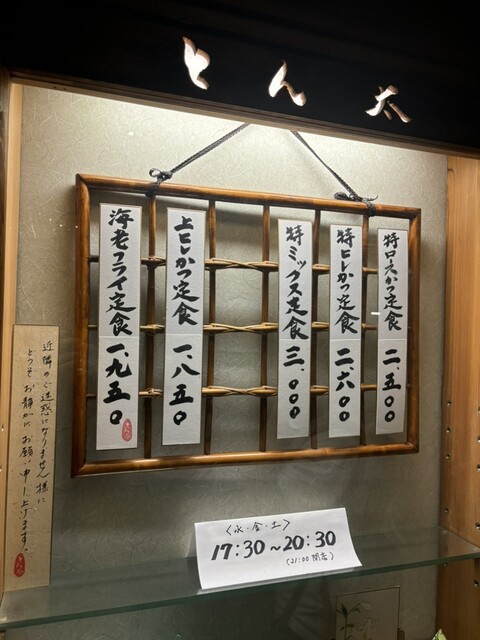 とん太
特ロースかつ定食 二、五〇〇
特ヒレかつ定食 二、六〇〇
特ミックス定食 三、〇〇〇
上ヒレかつ定食 一、八五〇
海老フライ定食 一、九五〇
近隣のご迷惑になりません様に
どうぞお静かにお願い申し上げます。
〈水・金・土〉
17:30~20:30
(21:00 閉店)